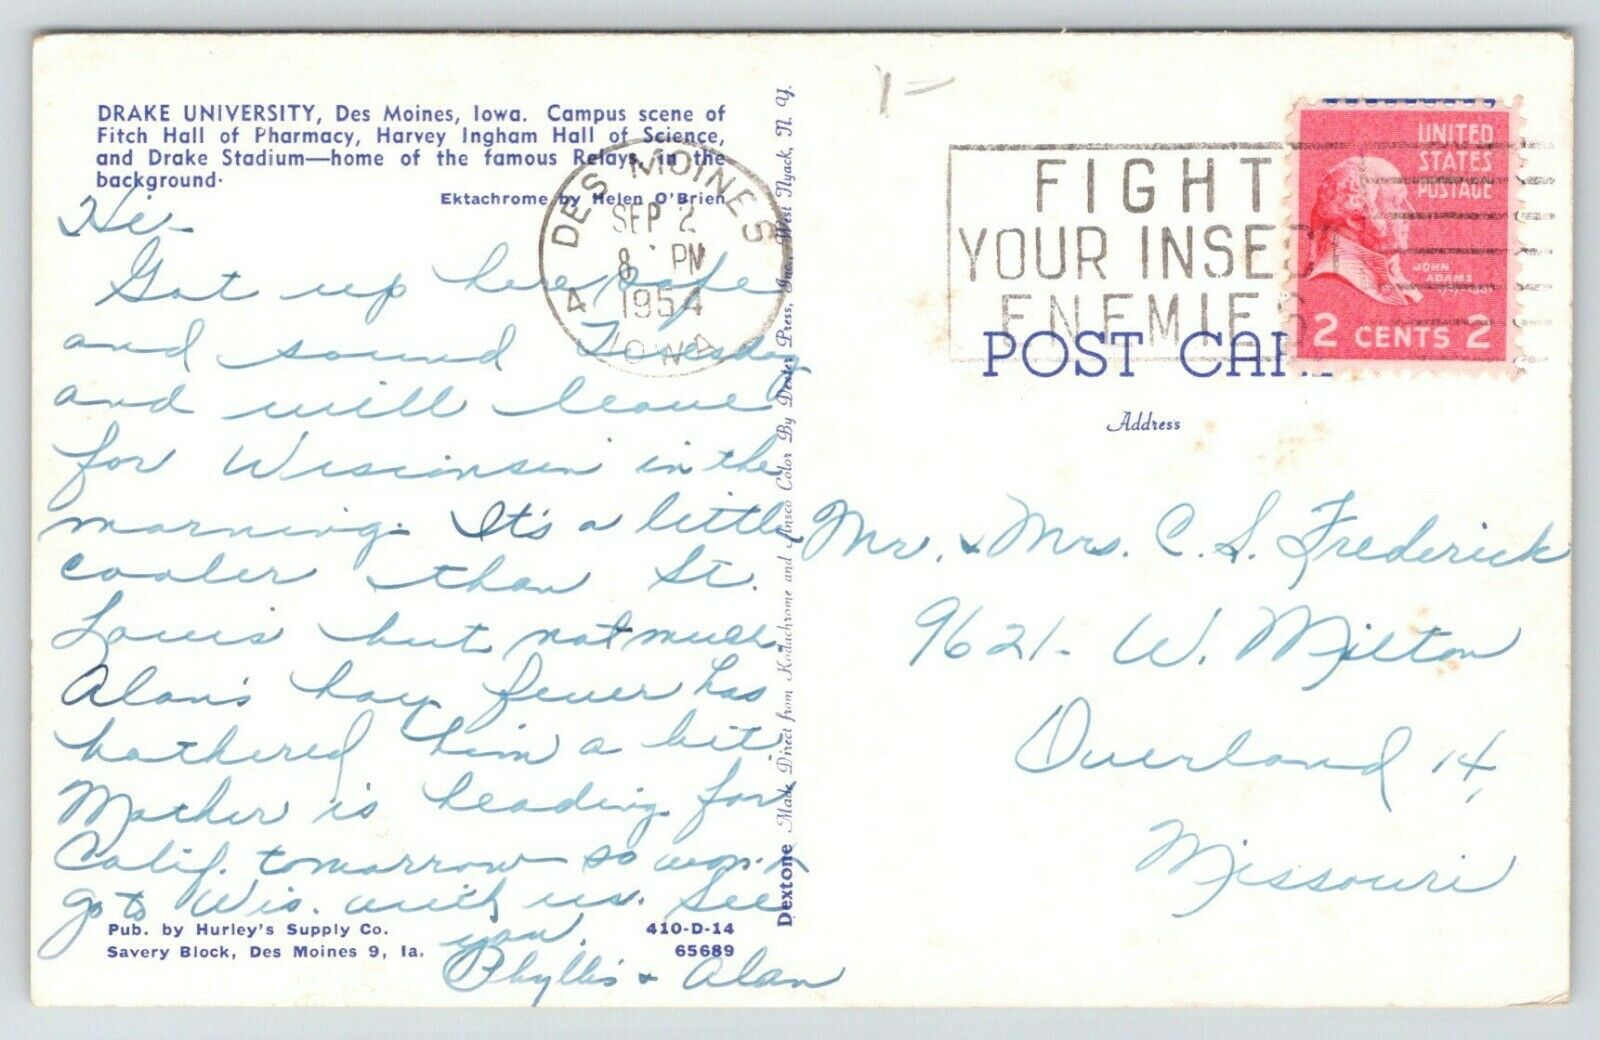 DRAKE UNIVERSITY, Des Moines, Iowa. Campus scene of
Fitch Hall of Pharmacy, Harvey Ingham Hall of Science,
and Drake Stadium—home of the famous Relays, in the
background.
Ektachrome by Helen O'Brien
Hi-
Got up here safe
and sound Tuesday
and will leave
for Wisconsin in the
morning. It's a little
cooler than St.
Louis but not much.
Alan's hay fever has
bothered him a bit.
Mother is heading for
Calif. tomorrow so won't
go to Wis. with us. See
you.
Phyllis & Alan
Pub. by Hurley's Supply Co.
Savery Block, Des Moines 9, Ia.
410-D-14
65689
Dextone Made Direct from Kodachrome and Ansco Color By Dexter Press, Inc., West Nyack, N. Y.
DES MOINES
SEP 2
8 PM
1954
IOWA
FIGHT
YOUR INSECT
ENEMIES
UNITED
STATES
POSTAGE
JOHN
ADAMS
2 CENTS 2
POST CARD
Address
Mr. & Mrs. C. S. Frederick
9621- W. Milton
Overland 14,
Missouri